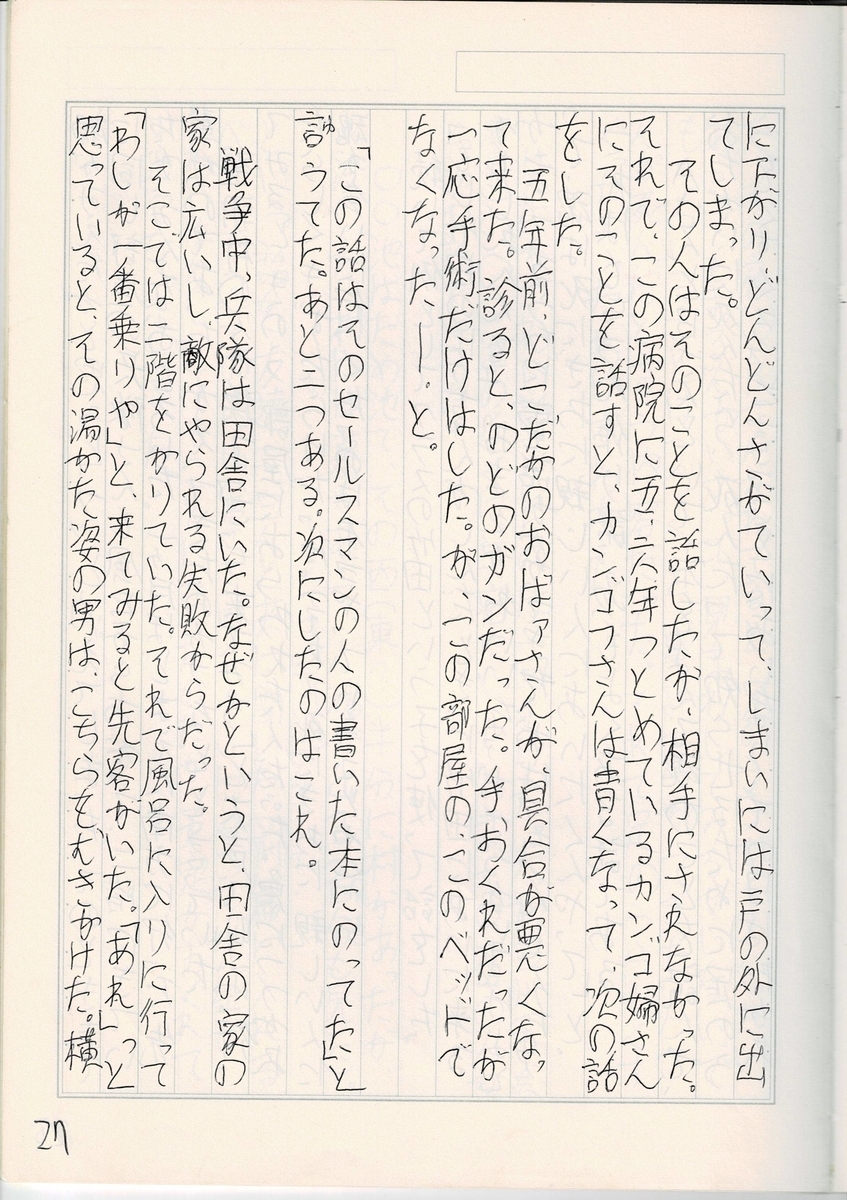 に下がり、どんどんさがていって、しまいには戸の外に出
てしまった。
そのんはそのことを話したが、相手にされなかった。
それで、この病院に五、六年つとめているカンゴ婦さん
にそのことを話すと、カンゴフさんは青くなって、次の話
をした。
五年前、どこだかのおばァさんが、具合が悪くなっ
て来た。診ると、のどのガンだった。手おくれだったが
一応手術だけはした。が、この部屋の、このベッドで
なくなったー。と。
「この話はそのセールスマンの人の書いた本にのってた」と
言うてた。あと二つある。次にしたのはこれ。
ゆ
戦争中、兵隊は田舎にいた。なぜかというと、田舎の家の
家は広いし、敵にやられる失敗からだった。
そこでは二階をかりていた。それで風呂に入りに行って
「わしが一番乗りや」と、来てみると先客がいた。「あれ」っと
思っていると、その湯かた姿の男は、こちらをむきかけた。横
27